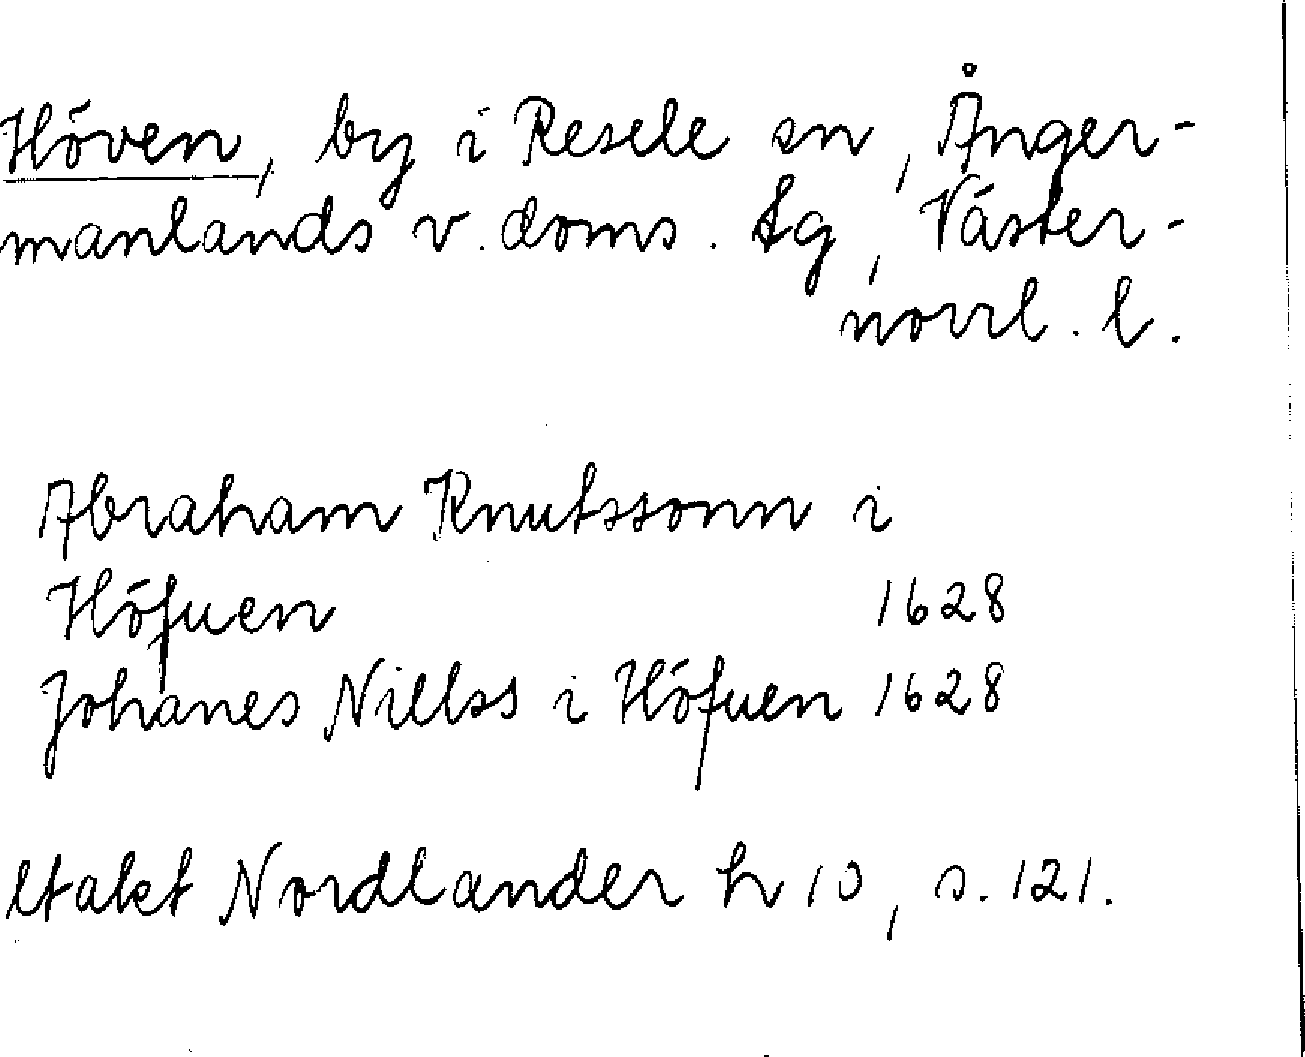 Höven, by i Resele sn, Ånger-
manlands v. doms. tg, Väster-
norrl. l.
Abraham Knutssonn i
Höfuen 1628
Johanes Nillss i Höfuen 1628
Utakt Nordlander h 10, s. 121.